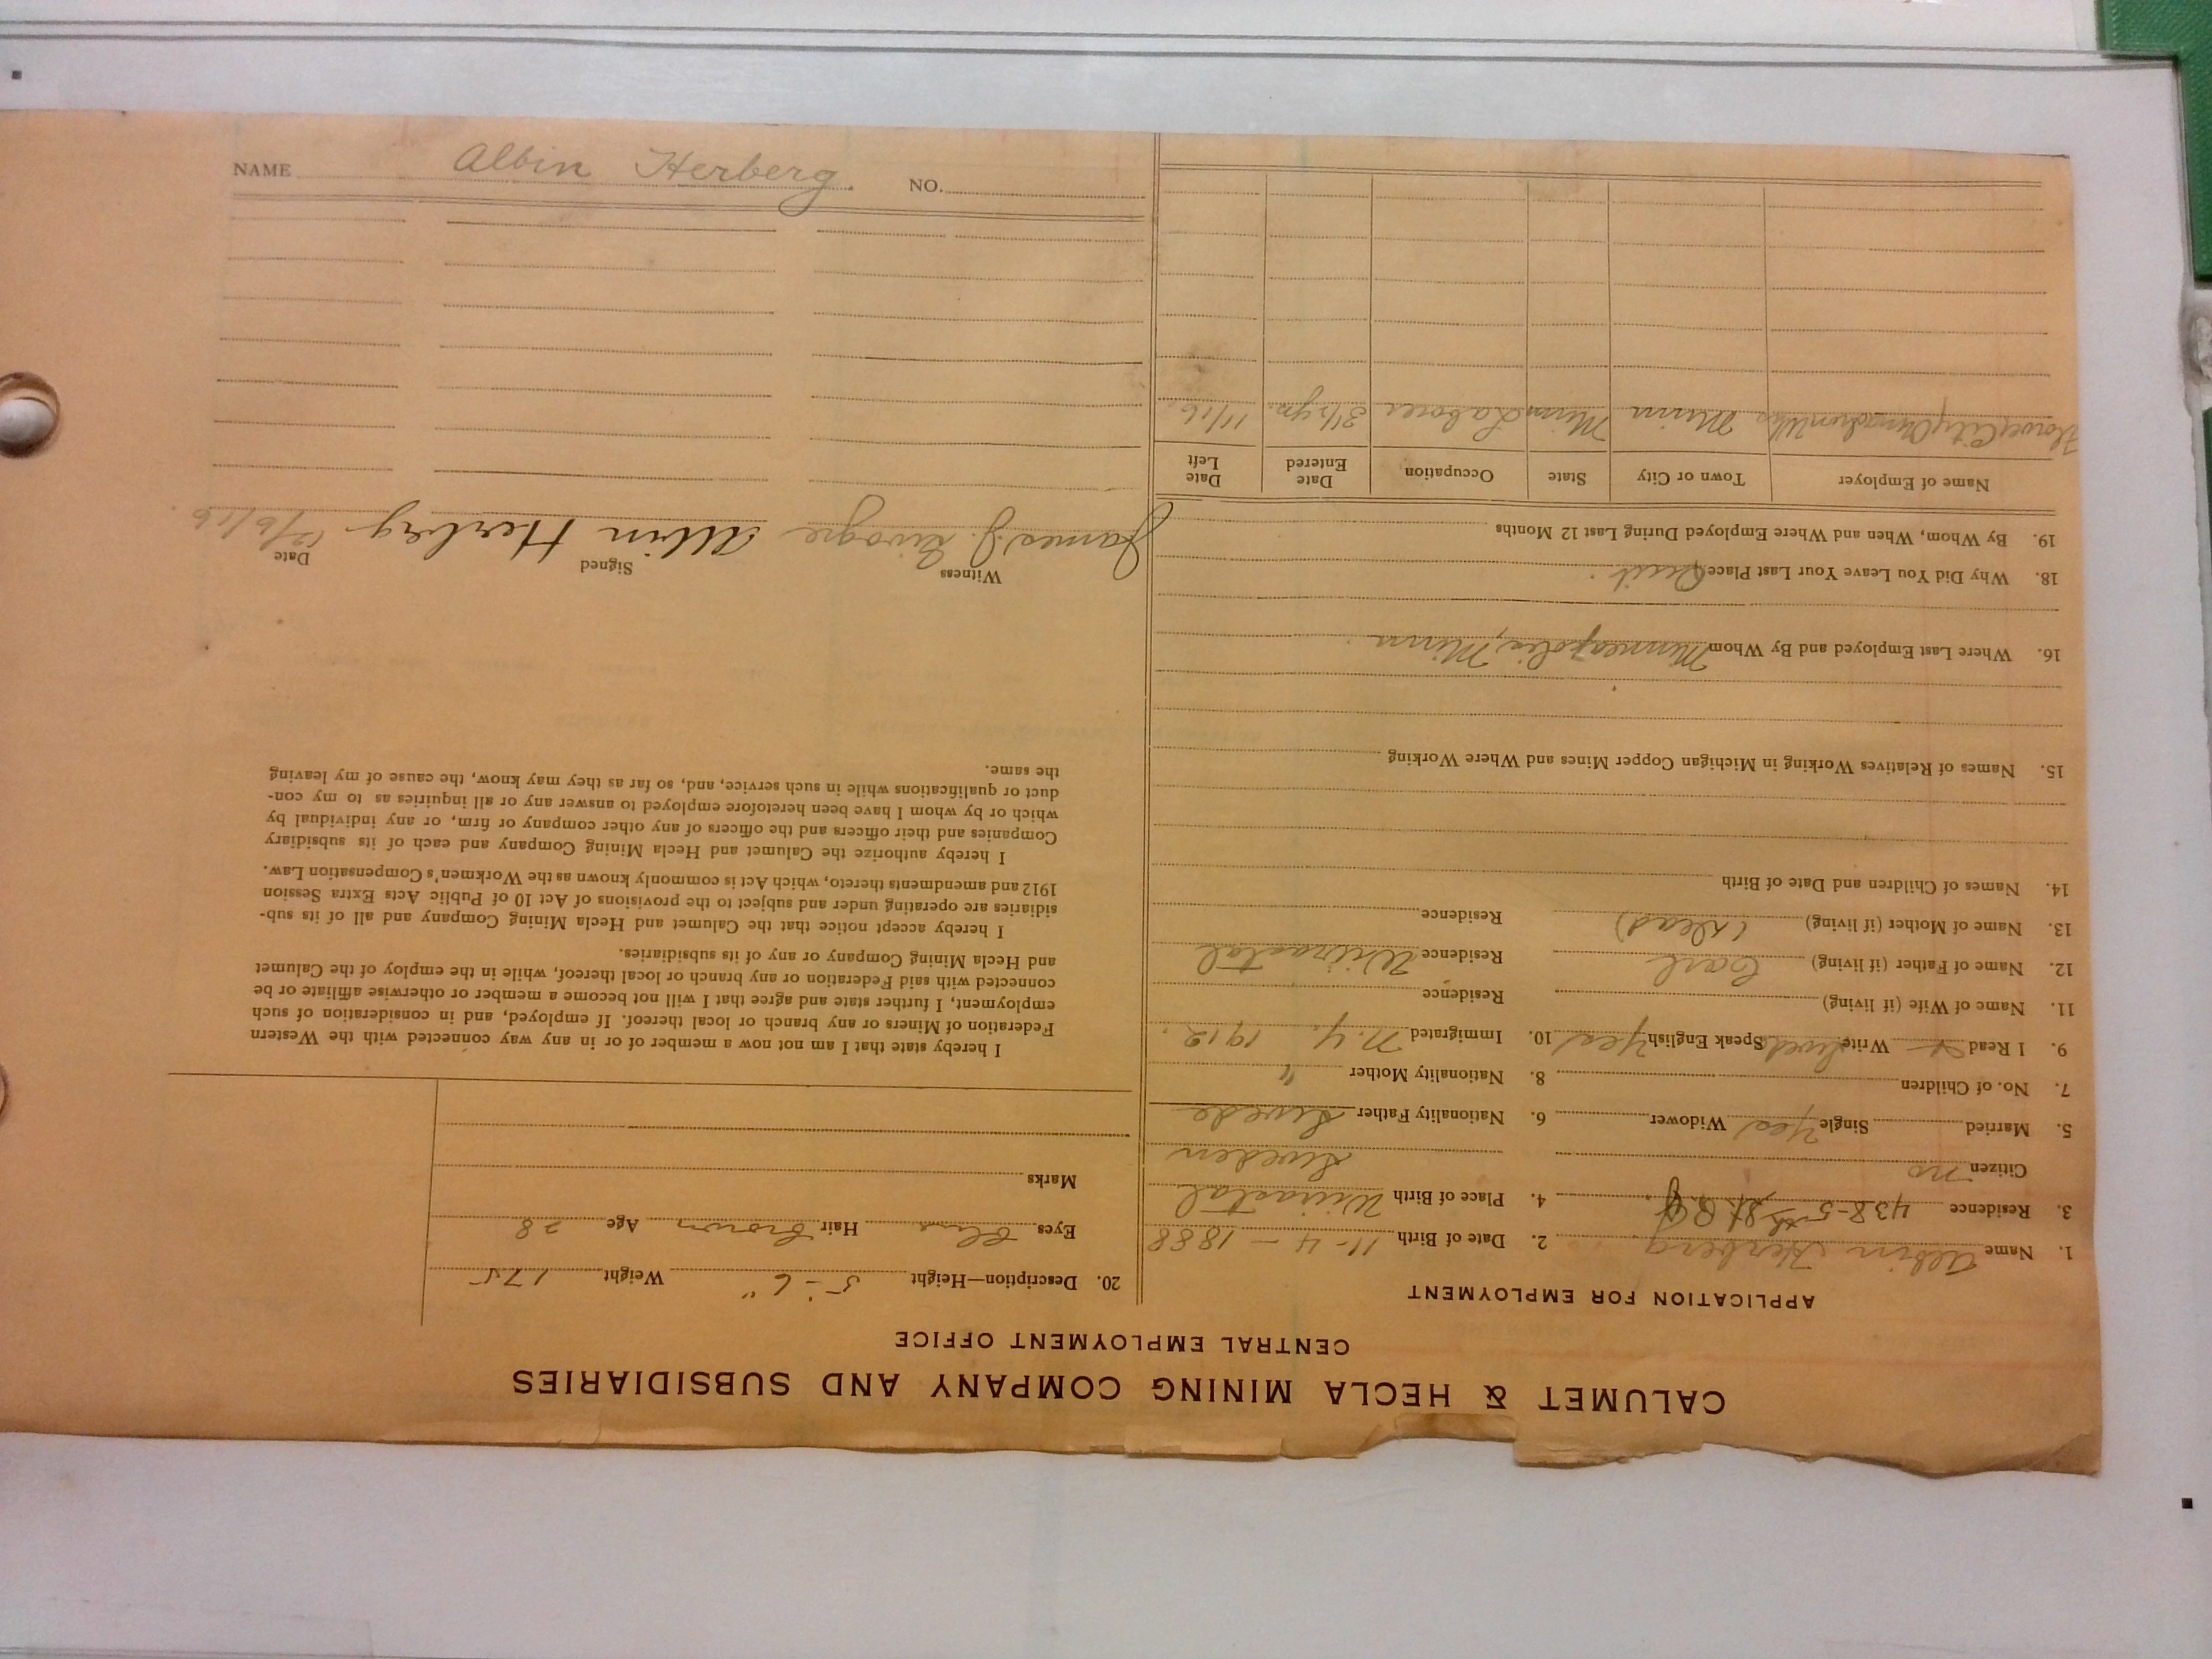 CALUMET & HECLA MINING COMPANY AND SUBSIDIARIES
CENTRAL EMPLOYMENT OFFICE
APPLICATION FOR EMPLOYMENT
1. Name Albin Herberg 2. Date of Birth 11-4-1888
3. Residence 438-5th St. 4. Place of Birth
Citizen no Sweden
5. Married Single Yes Widower 6. Nationality Father Swede
7. No. of Children 8. Nationality Mother "
9. I Read Write Swed Speak English Yes 10. Immigrated N.Y. 1912.
11. Name of Wife (if living) Residence
12. Name of Father (if living) Carl Residence
13. Name of Mother (if living) (Dead) Residence
14. Names of Children and Date of Birth
15. Names of Relatives Working in Michigan Copper Mines and Where Working
16. Where Last Employed and By Whom Minneapolis, Minn.
18. Why Did You Leave Your Last Place Quit.
19. By Whom, When and Where Employed During Last 12 Months
Name of Employer Town or City State Occupation Date Entered Date Left
Flower City Minn Minn Laborer 3 1/2 yrs. 11/16
20. Description—Height 5'-6" Weight 175
Eyes Blue Hair Brown Age 28
Marks
I hereby state that I am not now a member of or in any way connected with the Western
Federation of Miners or any branch or local thereof. If employed, and in consideration of such
employment, I further state and agree that I will not become a member or otherwise affiliate or be
connected with said Federation or any branch or local thereof, while in the employ of the Calumet
and Hecla Mining Company or any of its subsidiaries.
I hereby accept notice that the Calumet and Hecla Mining Company and all of its sub-
sidiaries are operating under and subject to the provisions of Act 10 of Public Acts Extra Session
1912 and amendments thereto, which Act is commonly known as the Workmen's Compensation Law.
I hereby authorize the Calumet and Hecla Mining Company and each of its subsidiary
Companies and their officers and the officers of any other company or firm, or any individual by
which or by whom I have been heretofore employed to answer any or all inquiries as to my con-
duct or qualifications while in such service, and, so far as they may know, the cause of my leaving
the same.
Witness Signed Date
James J. Albin Herberg 12/6/16.
NAME Albin Herberg. NO.